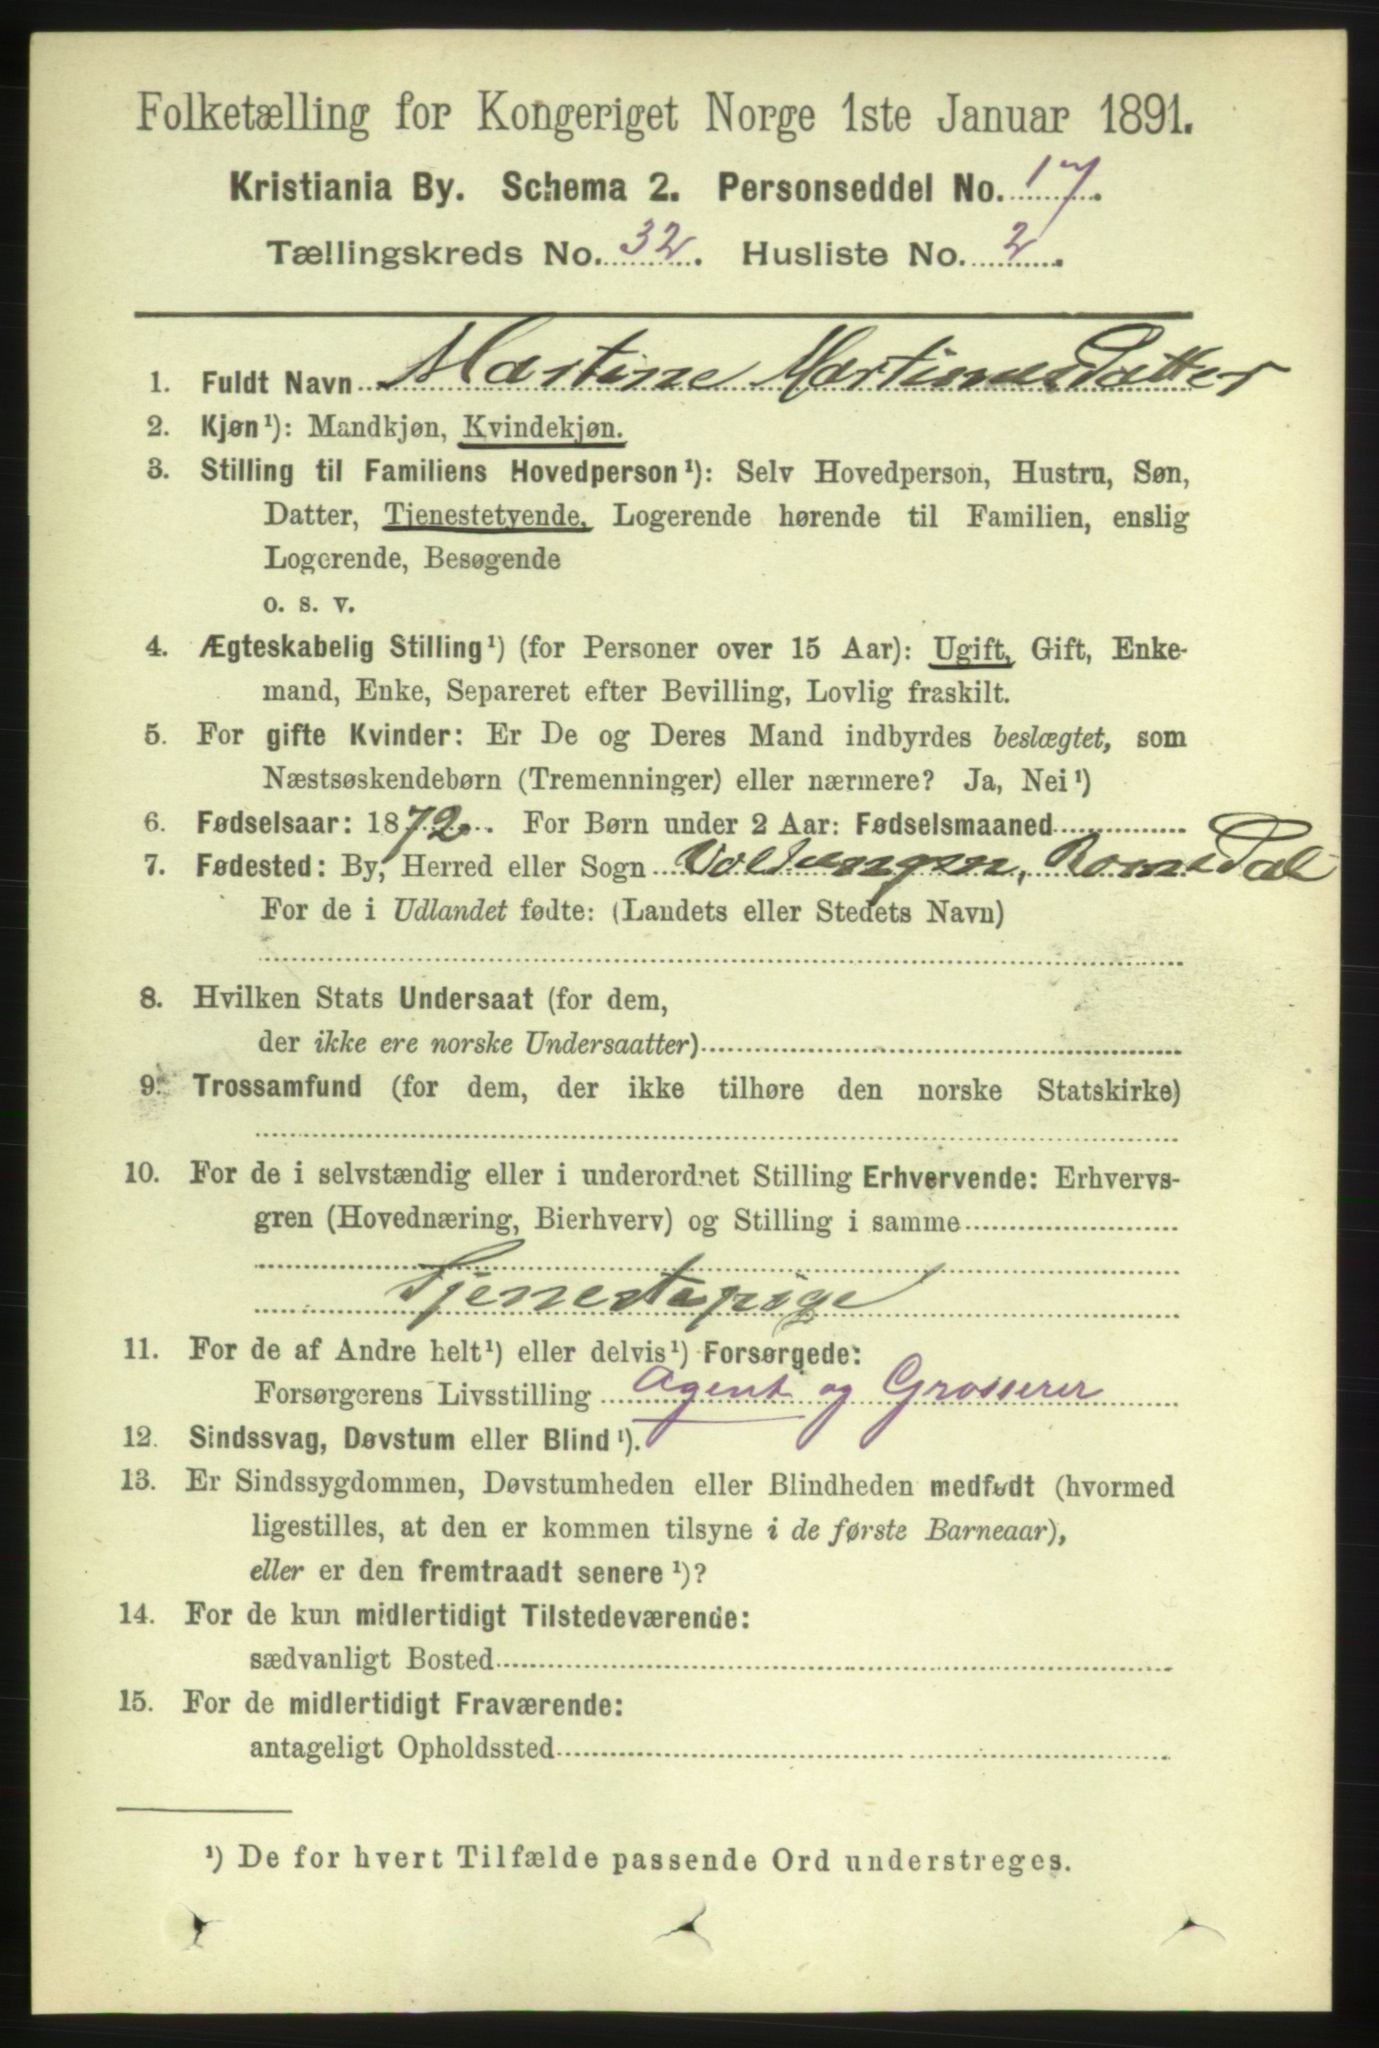 Folketælling for Kongeriget Norge 1ste Januar 1891.
Kristiania By. Schema 2. Personseddel No. 17.
Tællingskreds No. 32. Husliste No. 2.
1. Fuldt Navn Martine Martinusdatter
2. Kjøn¹): Mandkjøn, Kvindekjøn.
3. Stilling til Familiens Hovedperson¹): Selv Hovedperson, Hustru, Søn,
Datter, Tjenestetyende, Logerende hørende til Familien, enslig
Logerende, Besøgende
o. s. v.
4. Ægteskabelig Stilling¹) (for Personer over 15 Aar): Ugift, Gift, Enke-
mand, Enke, Separeret efter Bevilling, Lovlig fraskilt.
5. For gifte Kvinder: Er De og Deres Mand indbyrdes beslægtet, som
Næstsøskendebørn (Tremenninger) eller nærmere? Ja, Nei¹)
6. Fødselsaar: 1872. For Børn under 2 Aar: Fødselsmaaned
7. Fødested: By, Herred eller Sogn Romsdal
For de i Udlandet fødte: (Landets eller Stedets Navn)
8. Hvilken Stats Undersaat (for dem,
der ikke ere norske Undersaatter)
9. Trossamfund (for dem, der ikke tilhøre den norske Statskirke)
10. For de i selvstændig eller i underordnet Stilling Erhvervende: Erhvervs-
gren (Hovednæring, Bierhverv) og Stilling i samme
Tjenestepige
11. For de af Andre helt¹) eller delvis¹) Forsørgede:
Forsørgerens Livsstilling Agent og Grosserer
12. Sindssvag, Døvstum eller Blind¹).
13. Er Sindssygdommen, Døvstumheden eller Blindheden medfødt (hvormed
ligestilles, at den er kommen tilsyne i de første Barneaar),
eller er den fremtraadt senere¹)?
14. For de kun midlertidigt Tilstedeværende:
sædvanligt Bosted
15. For de midlertidigt Fraværende:
antageligt Opholdssted
¹) De for hvert Tilfælde passende Ord understreges.